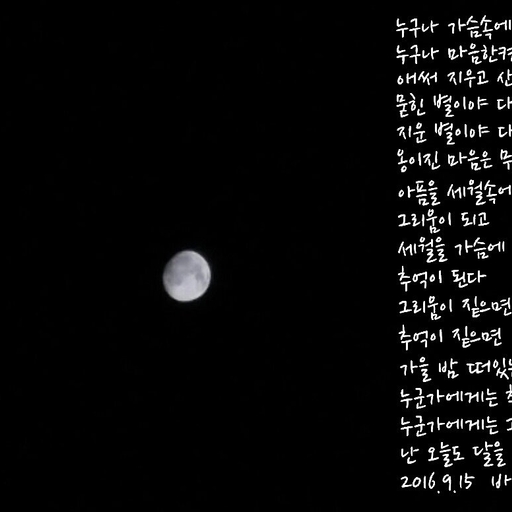 누구나 가슴속에
누구나 마음한켠
애써 지우고 산
묻힌 별이야 다
지운 별이야 다
옹이진 마음은 무
아픔을 세월속에
그리움이 되고
세월을 가슴에
추억이 된다
그리움이 짙으면
추억이 짙으면
가을 밤 떠있는
누군가에게는
누군가에게는 그
난 오늘도 달을
2016.9.15 바